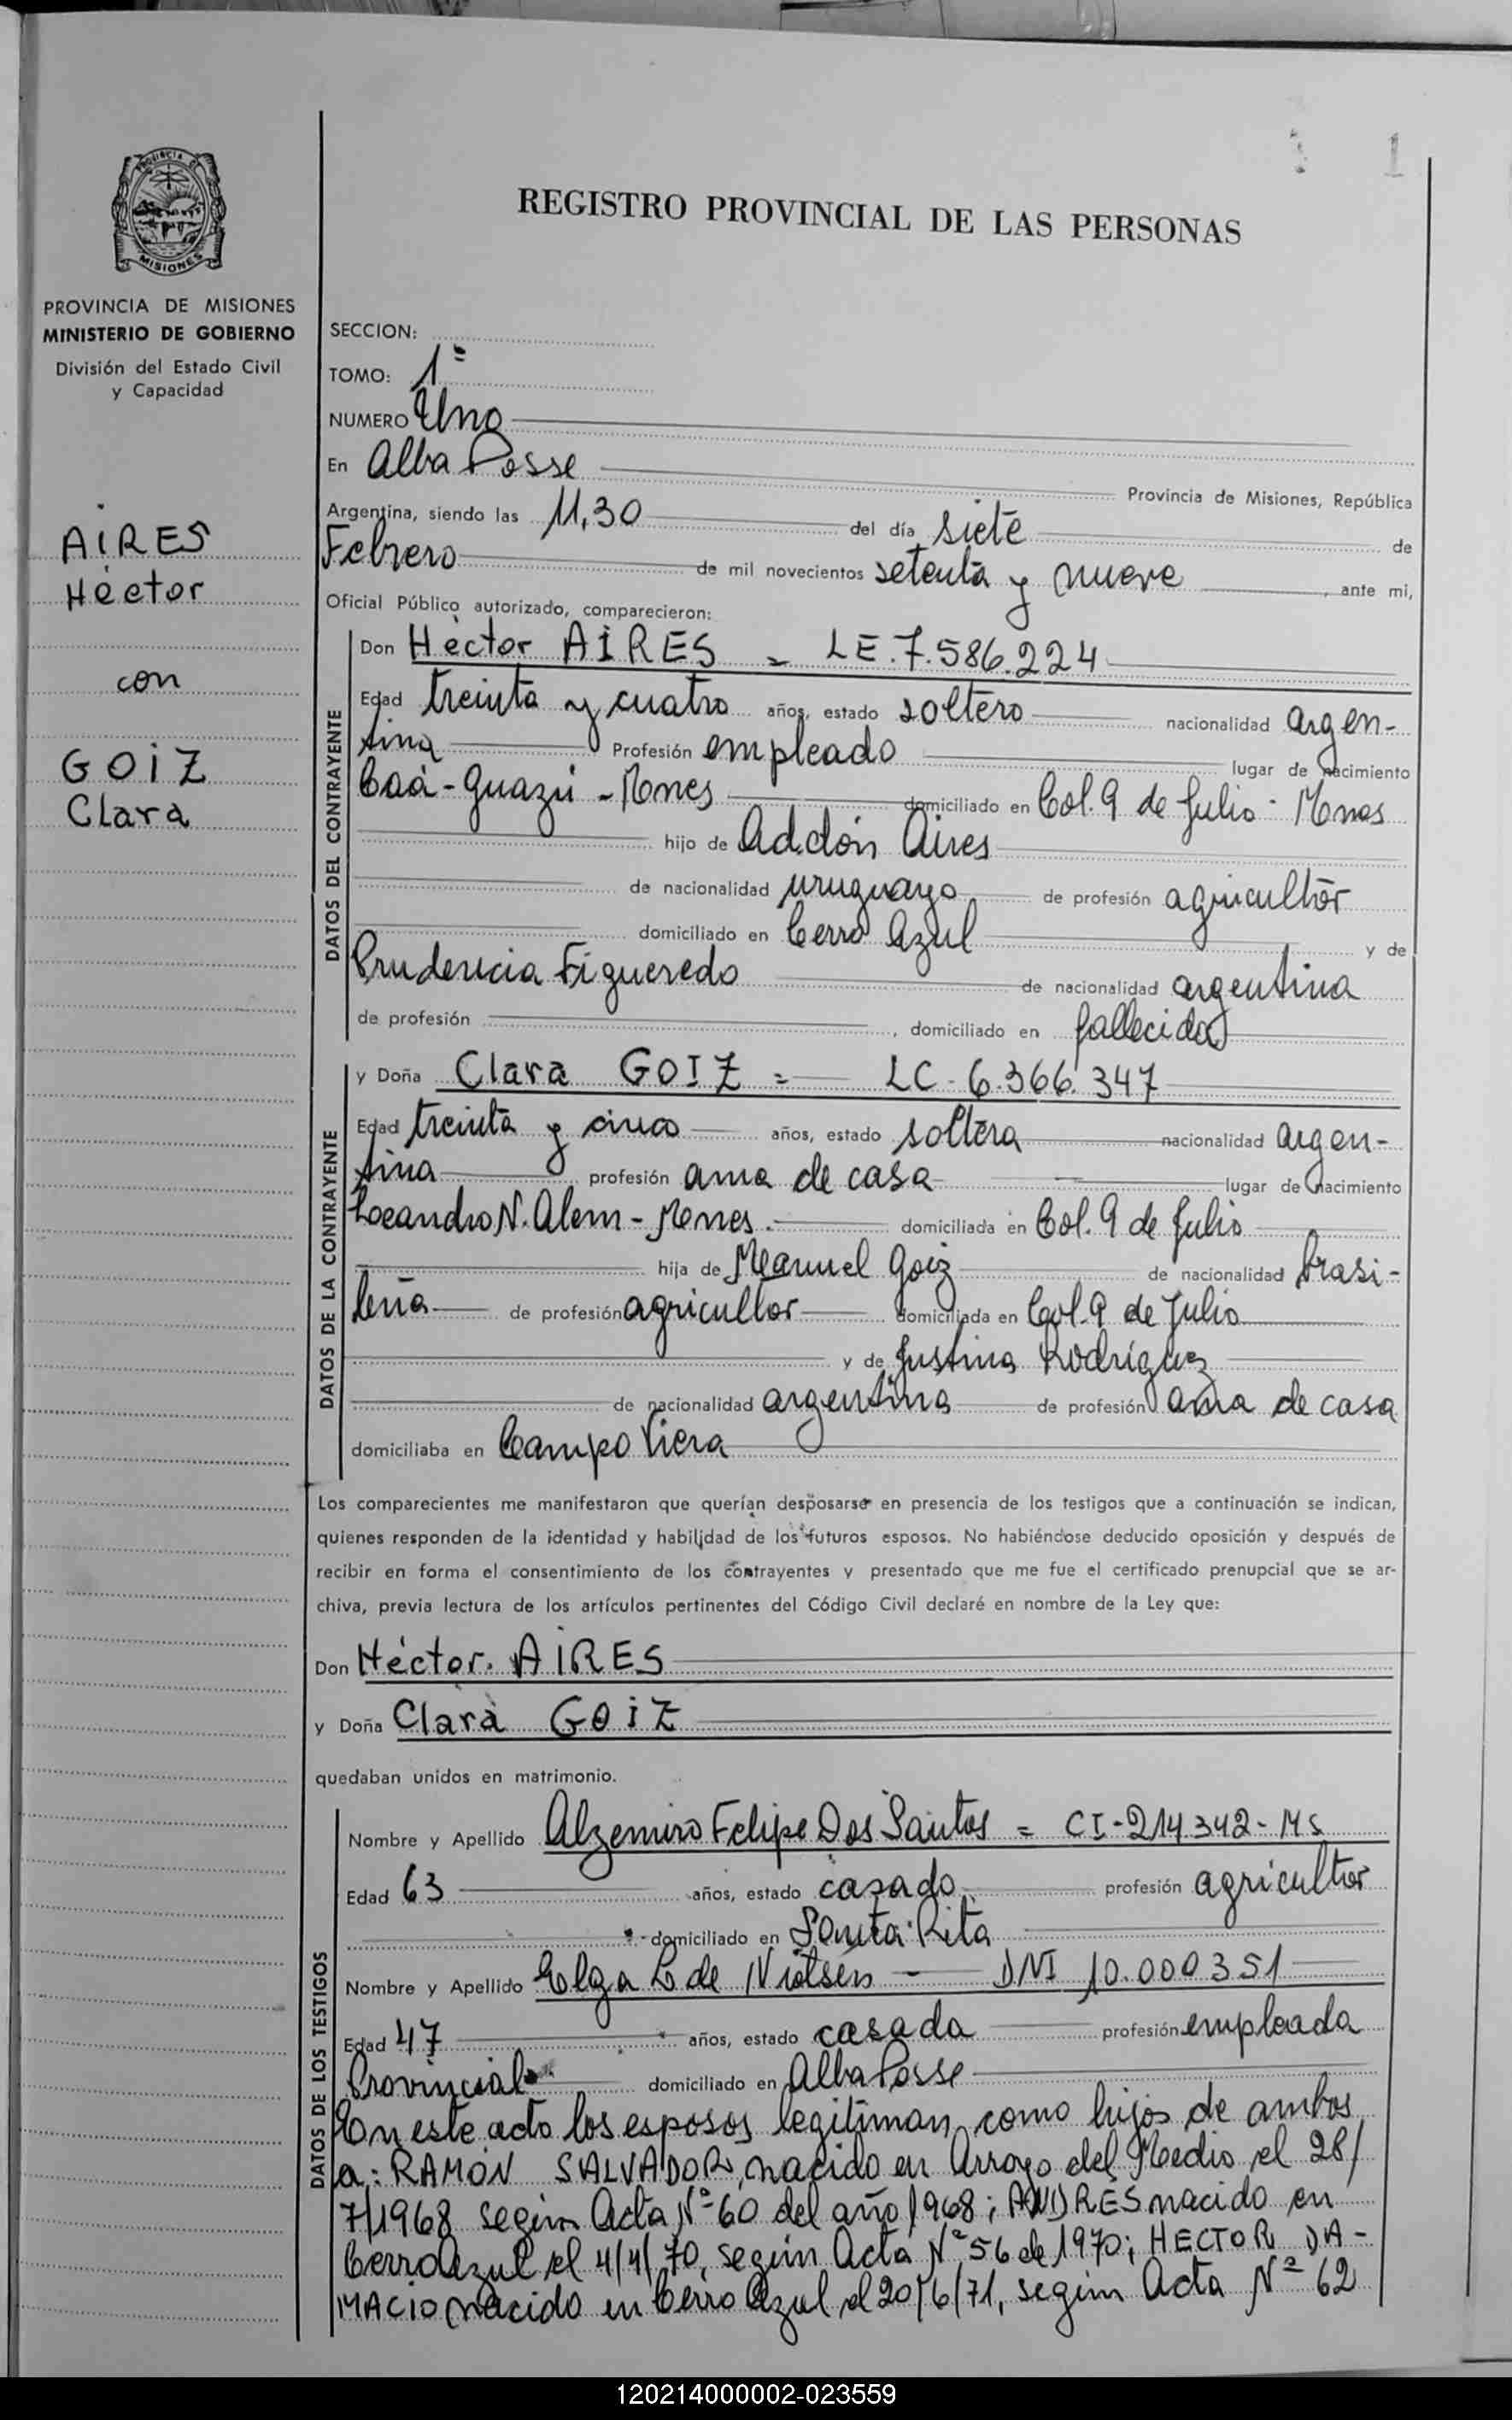 1
REGISTRO PROVINCIAL DE LAS PERSONAS
PROVINCIA DE MISIONES
MISIONES
PROVINCIA DE MISIONES
MINISTERIO DE GOBIERNO
División del Estado Civil
y Capacidad
AIRES
Héctor
con
GOIZ
Clara
SECCION:
TOMO: 1º
NUMERO Uno
En Alba Posse Provincia de Misiones, República
Argentina, siendo las 11,30 del día siete de
Febrero de mil novecientos setenta y nueve, ante mi,
Oficial Público autorizado, comparecieron:
DATOS DEL CONTRAYENTE
Don Héctor AIRES = LE.7.586.224
Edad treinta y cuatro años, estado soltero nacionalidad argen-
tina Profesión empleado lugar de nacimiento
Caá-Guazú - Mnes domiciliado en Col. 9 de Julio - Mnes
hijo de Addón Aires
de nacionalidad uruguayo de profesión agricultor
domiciliado en Cerro Azul y de
Prudencia Figueredo de nacionalidad argentina
de profesión , domiciliado en fallecida
DATOS DE LA CONTRAYENTE
y Doña Clara GOIZ = LC - 6.366.347
Edad treinta y cinco años, estado soltera nacionalidad argen-
tina profesión ama de casa lugar de nacimiento
Leandro N. Alem - Mnes. domiciliada en Col. 9 de Julio
hija de Manuel Goiz de nacionalidad brasi-
leña de profesión agricultor domiciliada en Col. 9 de Julio
y de Justina Rodríguez
de nacionalidad argentina de profesión ama de casa
domiciliaba en Campo Viera
Los comparecientes me manifestaron que querían desposarse en presencia de los testigos que a continuación se indican,
quienes responden de la identidad y habilidad de los futuros esposos. No habiéndose deducido oposición y después de
recibir en forma el consentimiento de los contrayentes y presentado que me fue el certificado prenupcial que se ar-
chiva, previa lectura de los artículos pertinentes del Código Civil declaré en nombre de la Ley que:
Don Héctor. AIRES
y Doña Clara GOIZ
quedaban unidos en matrimonio.
DATOS DE LOS TESTIGOS
Nombre y Apellido Alzemiro Felipe Dos Santos = CI-214.342-MS
Edad 63 años, estado casado profesión agricultor
domiciliado en Santa Rita
Nombre y Apellido de DNI 10.000351
Edad 47 años, estado casada profesión empleada
Provincial domiciliado en Alba Posse
En este acto los esposos legitiman como hijos de ambos
a: RAMÓN SALVADOR, nacido en Arroyo del Medio el 28/
7/1968 según Acta Nº 60 del año 1968; ANDRES nacido en
Cerro Azul el 4/4/70, según Acta Nº 56 de 1970; HECTOR DA-
MACIO nacido en Cerro Azul el 20/6/71, según Acta Nº 62
120214000002-023559